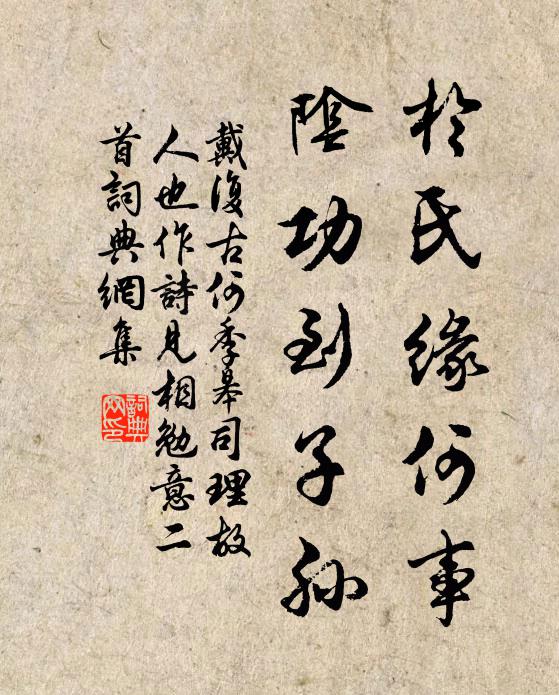 於氏緣何事
陰功到子孫
戴復古何季皋司理故
人也作詩見相勉意二
首詞典網集
詞典網印